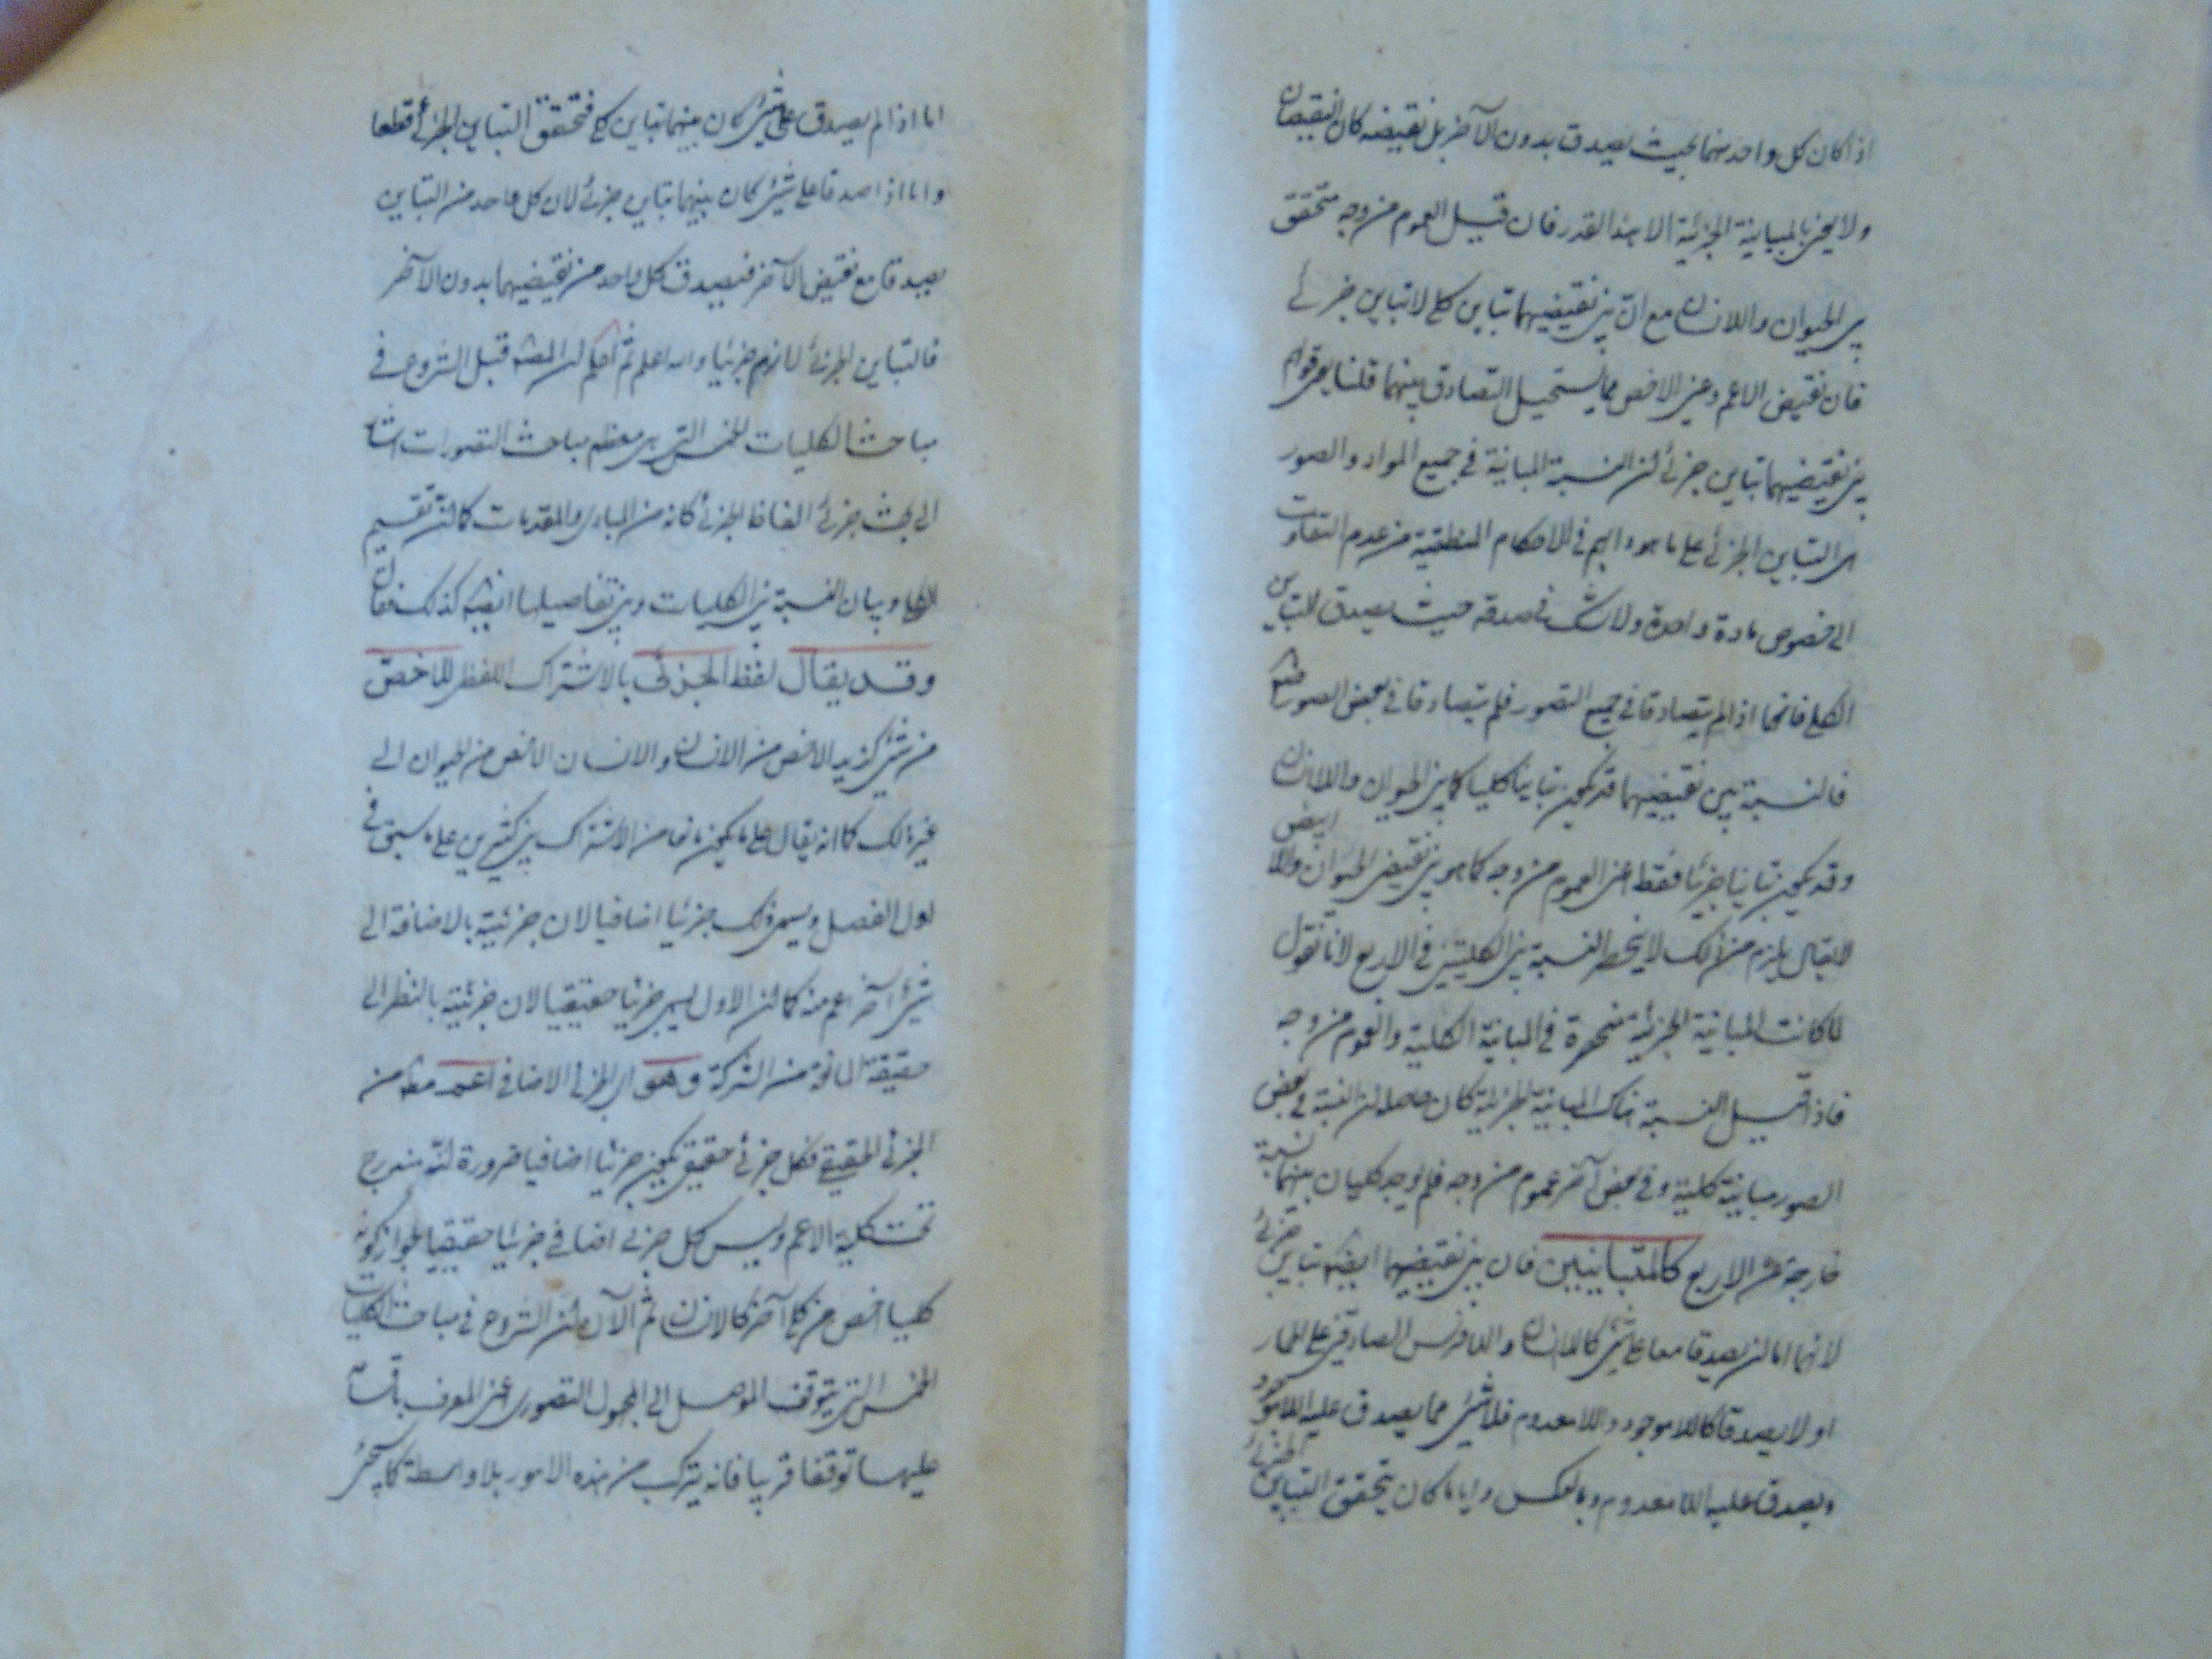 اذا كان كل واحد منهما بحيث يصدق بدون الآخر بل نقيضه كان النقيضان
ولا يعنى بالمباينة الجزئية الا هذا القدر فان قيل العموم من وجه متحقق
بين الحيوان واللاانسان مع ان بين نقيضيهما تباين كلى لا تباين جزئى
فان نقيض الاعم وعين الاخص مما يستحيل التصادق بينهما قلنا
بين نقيضيهما تباين جزئى ان النسبة المباينة فى جميع المواد والصور
هى التباين الجزئى على ما هو دابهم فى الاحكام المنطقية من عدم التفاوت
الى خصوص مادة واحدة ولا شك فى صدقه حيث يصدق التباين
الكلى فانهما اذا لم يتصادقا فى جميع الصور فلم يتصادقا فى بعض الصور
فالنسبة بين نقيضيهما قد يكون تباينا كليا كما بين الحيوان واللاانسان
وقد يكون تباينا جزئيا فقط اعنى العموم من وجه كما هو بين نقيض الحيوان واللاابيض
لا يقال يلزم من ذلك لا ينحصر النسبة بين الكليتين فى الاربع لانا نقول
لما كانت المباينة الجزئية منحصرة فى المباينة الكلية والعموم من وجه
فاذا قيل النسبة هناك المباينة الجزئية كان حاصله ان النسبة فى بعض
الصور مباينة كلية وفى بعض آخر عموم من وجه فلم يوجد كليان بينهما نسبة
خارجة عن الاربع كالمتباينين فان بين نقيضيهما ايضا تباين جزئى
لانهما اما ان يصدقا معا على شئ كاللاانسان واللافرس الصادقين على الحمار
او لا يصدقا كاللاموجود واللامعدوم فلا شئ مما يصدق عليه اللاموجود
ويصدق عليه اللامعدوم وبالعكس وايا ما كان يتحقق التباين الجزئى
اما اذا لم يصدق على شئ كان بينهما تباين كلى فتحقق التباين الجزئى قطعا
واما اذا صدقا على شئ كان بينهما تباين جزئى لان كل واحد من التباين
يصدق مع نقيض الآخر فيصدق كل واحد من نقيضيهما بدون الآخر
فالتباين الجزئى لازم جزئيا والله اعلم ثم اعلم ان المصنف قبل الشروع فى
مباحث الكليات الخمس التى هى معظم مباحث التصورات اشار
الى بحث جزئى الفاظ الجزئى كانه من المبادى والمقدمات كما ان تقسيم
الكلى وبيان النسبة بين الكليات وبين تفاصيلها ايضا كذلك فقال
وقد يقال لفظ الجزئى بالاشتراك اللفظى للاخص
من شئ كزيد الاخص من الانسان والانسان الاخص من الحيوان الى
غير ذلك كما انه يقال على ما يكون مانعا من الاشتراك بين كثيرين على ما سبق فى
اول الفصل ويسمى ذلك جزئيا اضافيا لان جزئيته بالاضافة الى
شئ آخر اعم منه كما ان الاول يسمى جزئيا حقيقيا لان جزئيته بالنظر الى
حقيقة المانعة من الشركة وهو اى الجزئى الاضافى اعم مطلقا من
الجزئى الحقيقى فكل جزئى حقيقى يكون جزئيا اضافيا ضرورة انه مندرج
تحت كلية الاعم وليس كل جزئى اضافى جزئيا حقيقيا لجواز كونه
كليا اخص من كلى آخر كالانسان ثم الآن اوان الشروع فى مباحث الكليات
الخمس التى يتوقف الموصل الى المجهول التصورى اعنى المعرف باقسامه
عليها توقفا قريبا فانه يتركب من هذه الامور بلا واسطة كما سيجئ